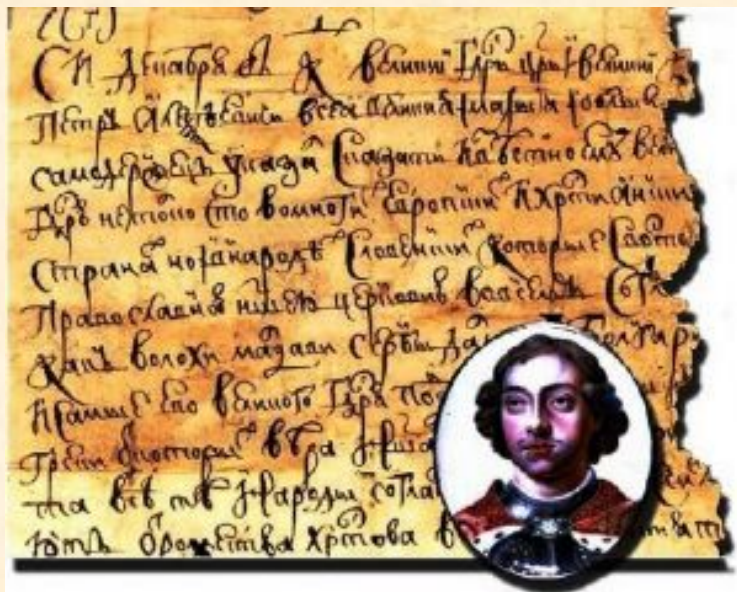 Декабря въ К великиі Гдрь црь і великиі
Петръ Алеѯѣевичь всеа великия і малыя і бѣлыя
самодержецъ указалъ сказать извѣстно ему вел
Гдрю не толко что во многихъ европскихъ хрстиянских
странахъ но і в народѣхъ словенскихъ которые с восто
православною нашею церковью во всемъ согла
какъ волохи мадави сербы да болгары
и самые его великого Гдря по
греки от которыхъ вѣра наша
та всѣ тѣ народы согла
ютъ от рожества Хрстова в